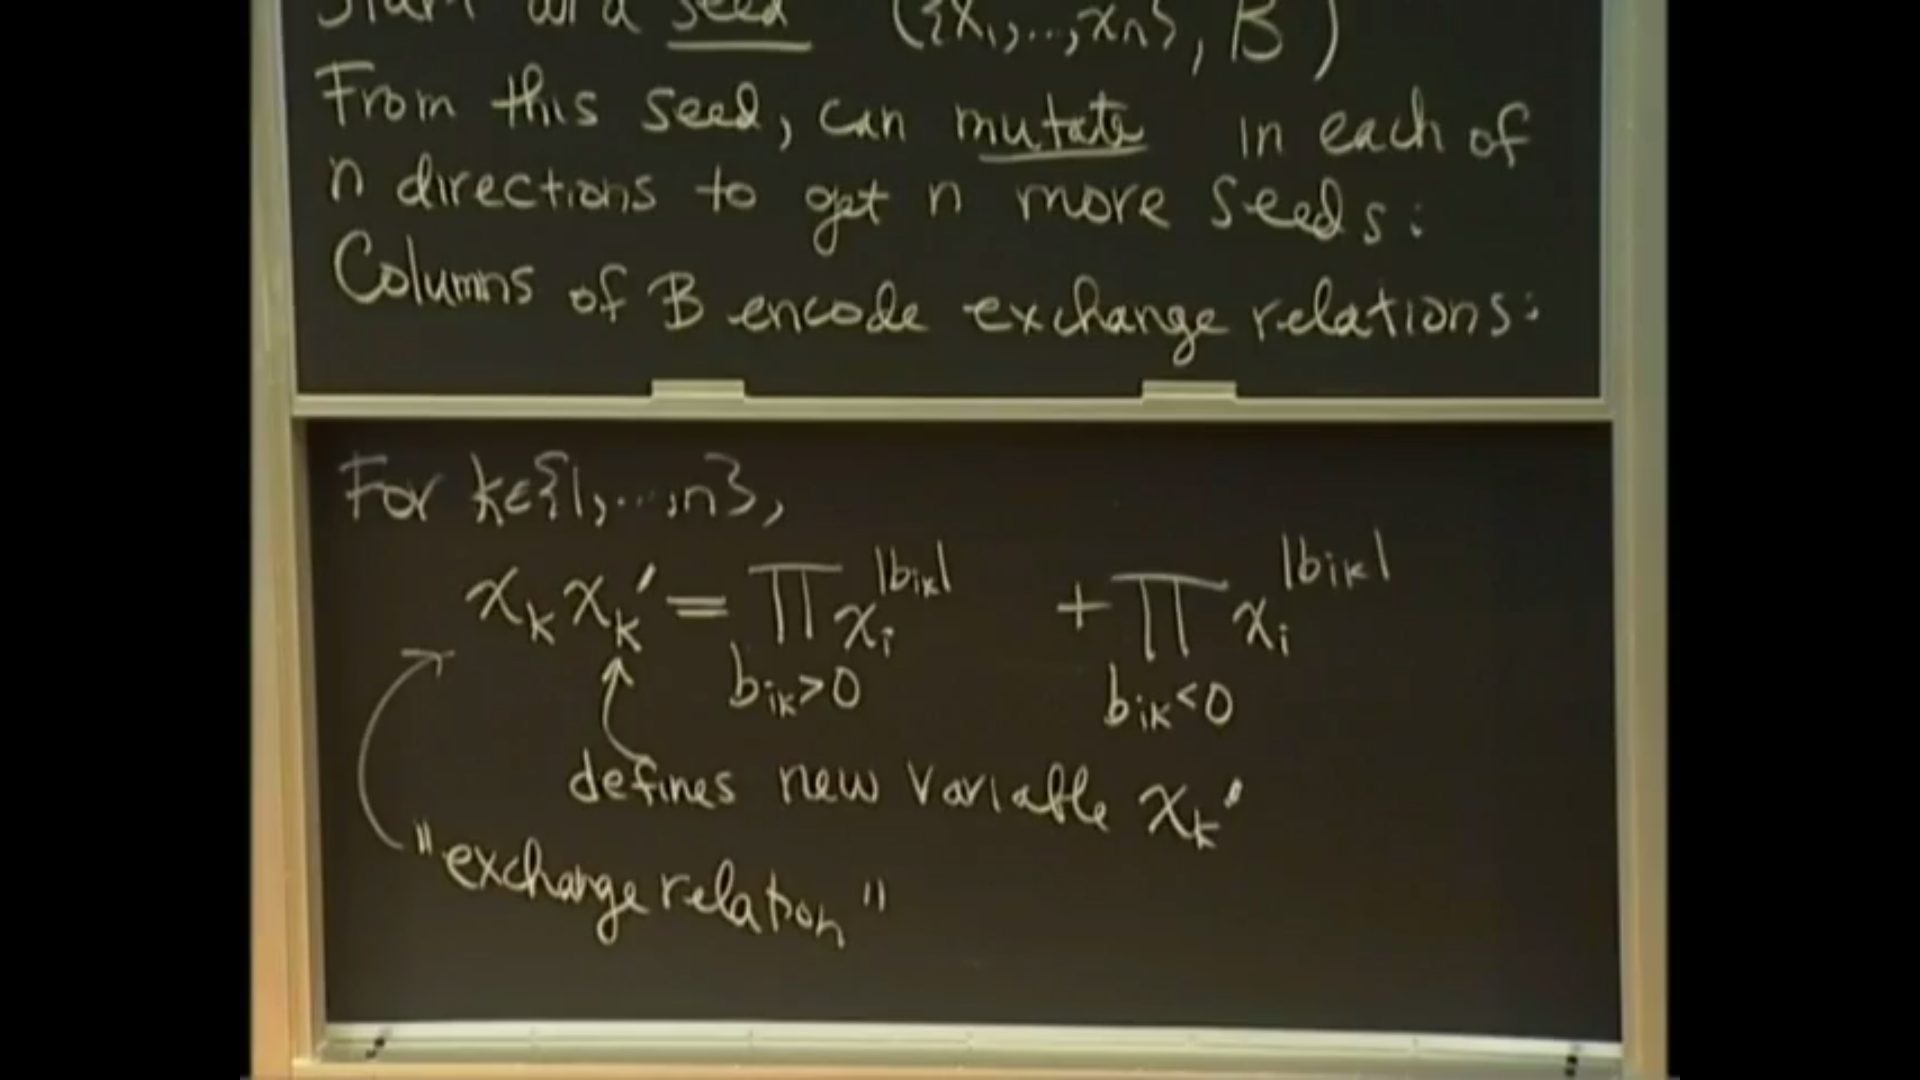 Start w/ a seed ({x₁,...,xₙ}, B)
From this seed, can mutate in each of
n directions to get n more seeds:
Columns of B encode exchange relations:
For k∈{1,...,n},
xₖxₖ' = ∏_{bᵢₖ>0} xᵢ^{|bᵢₖ|} + ∏_{bᵢₖ<0} xᵢ^{|bᵢₖ|}
defines new variable xₖ'
"exchange relation"